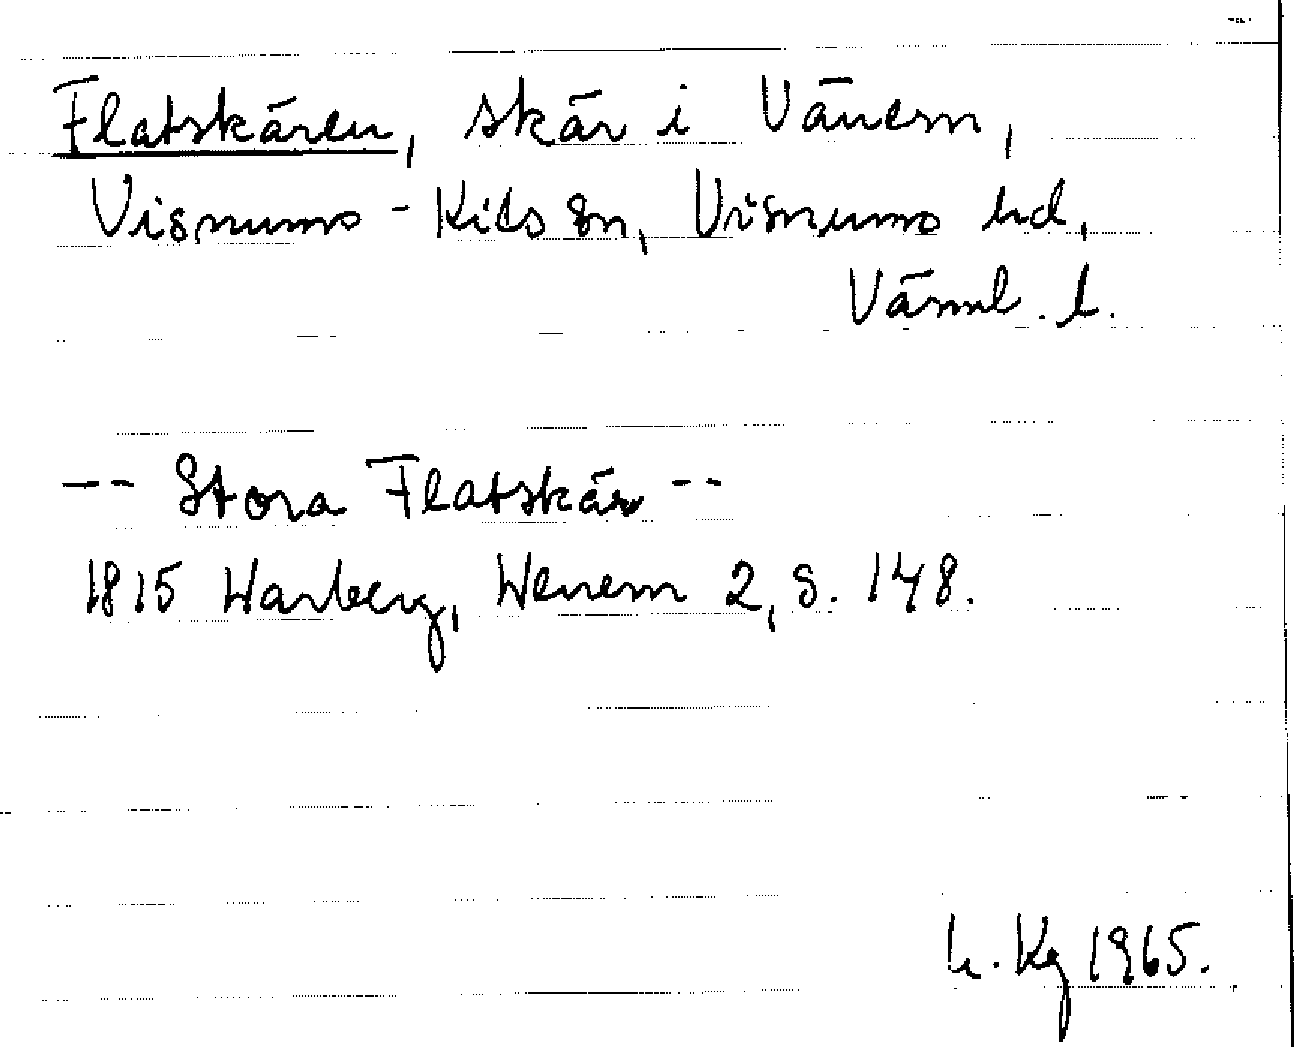 Flatskären, skär i Vänern,
Visnums-Kils sn, Visnums hd,
Värml. l.
-- Stora Flatskär --
1815 Warberg, Wenern 2, S. 148.
L. Kg 1965.